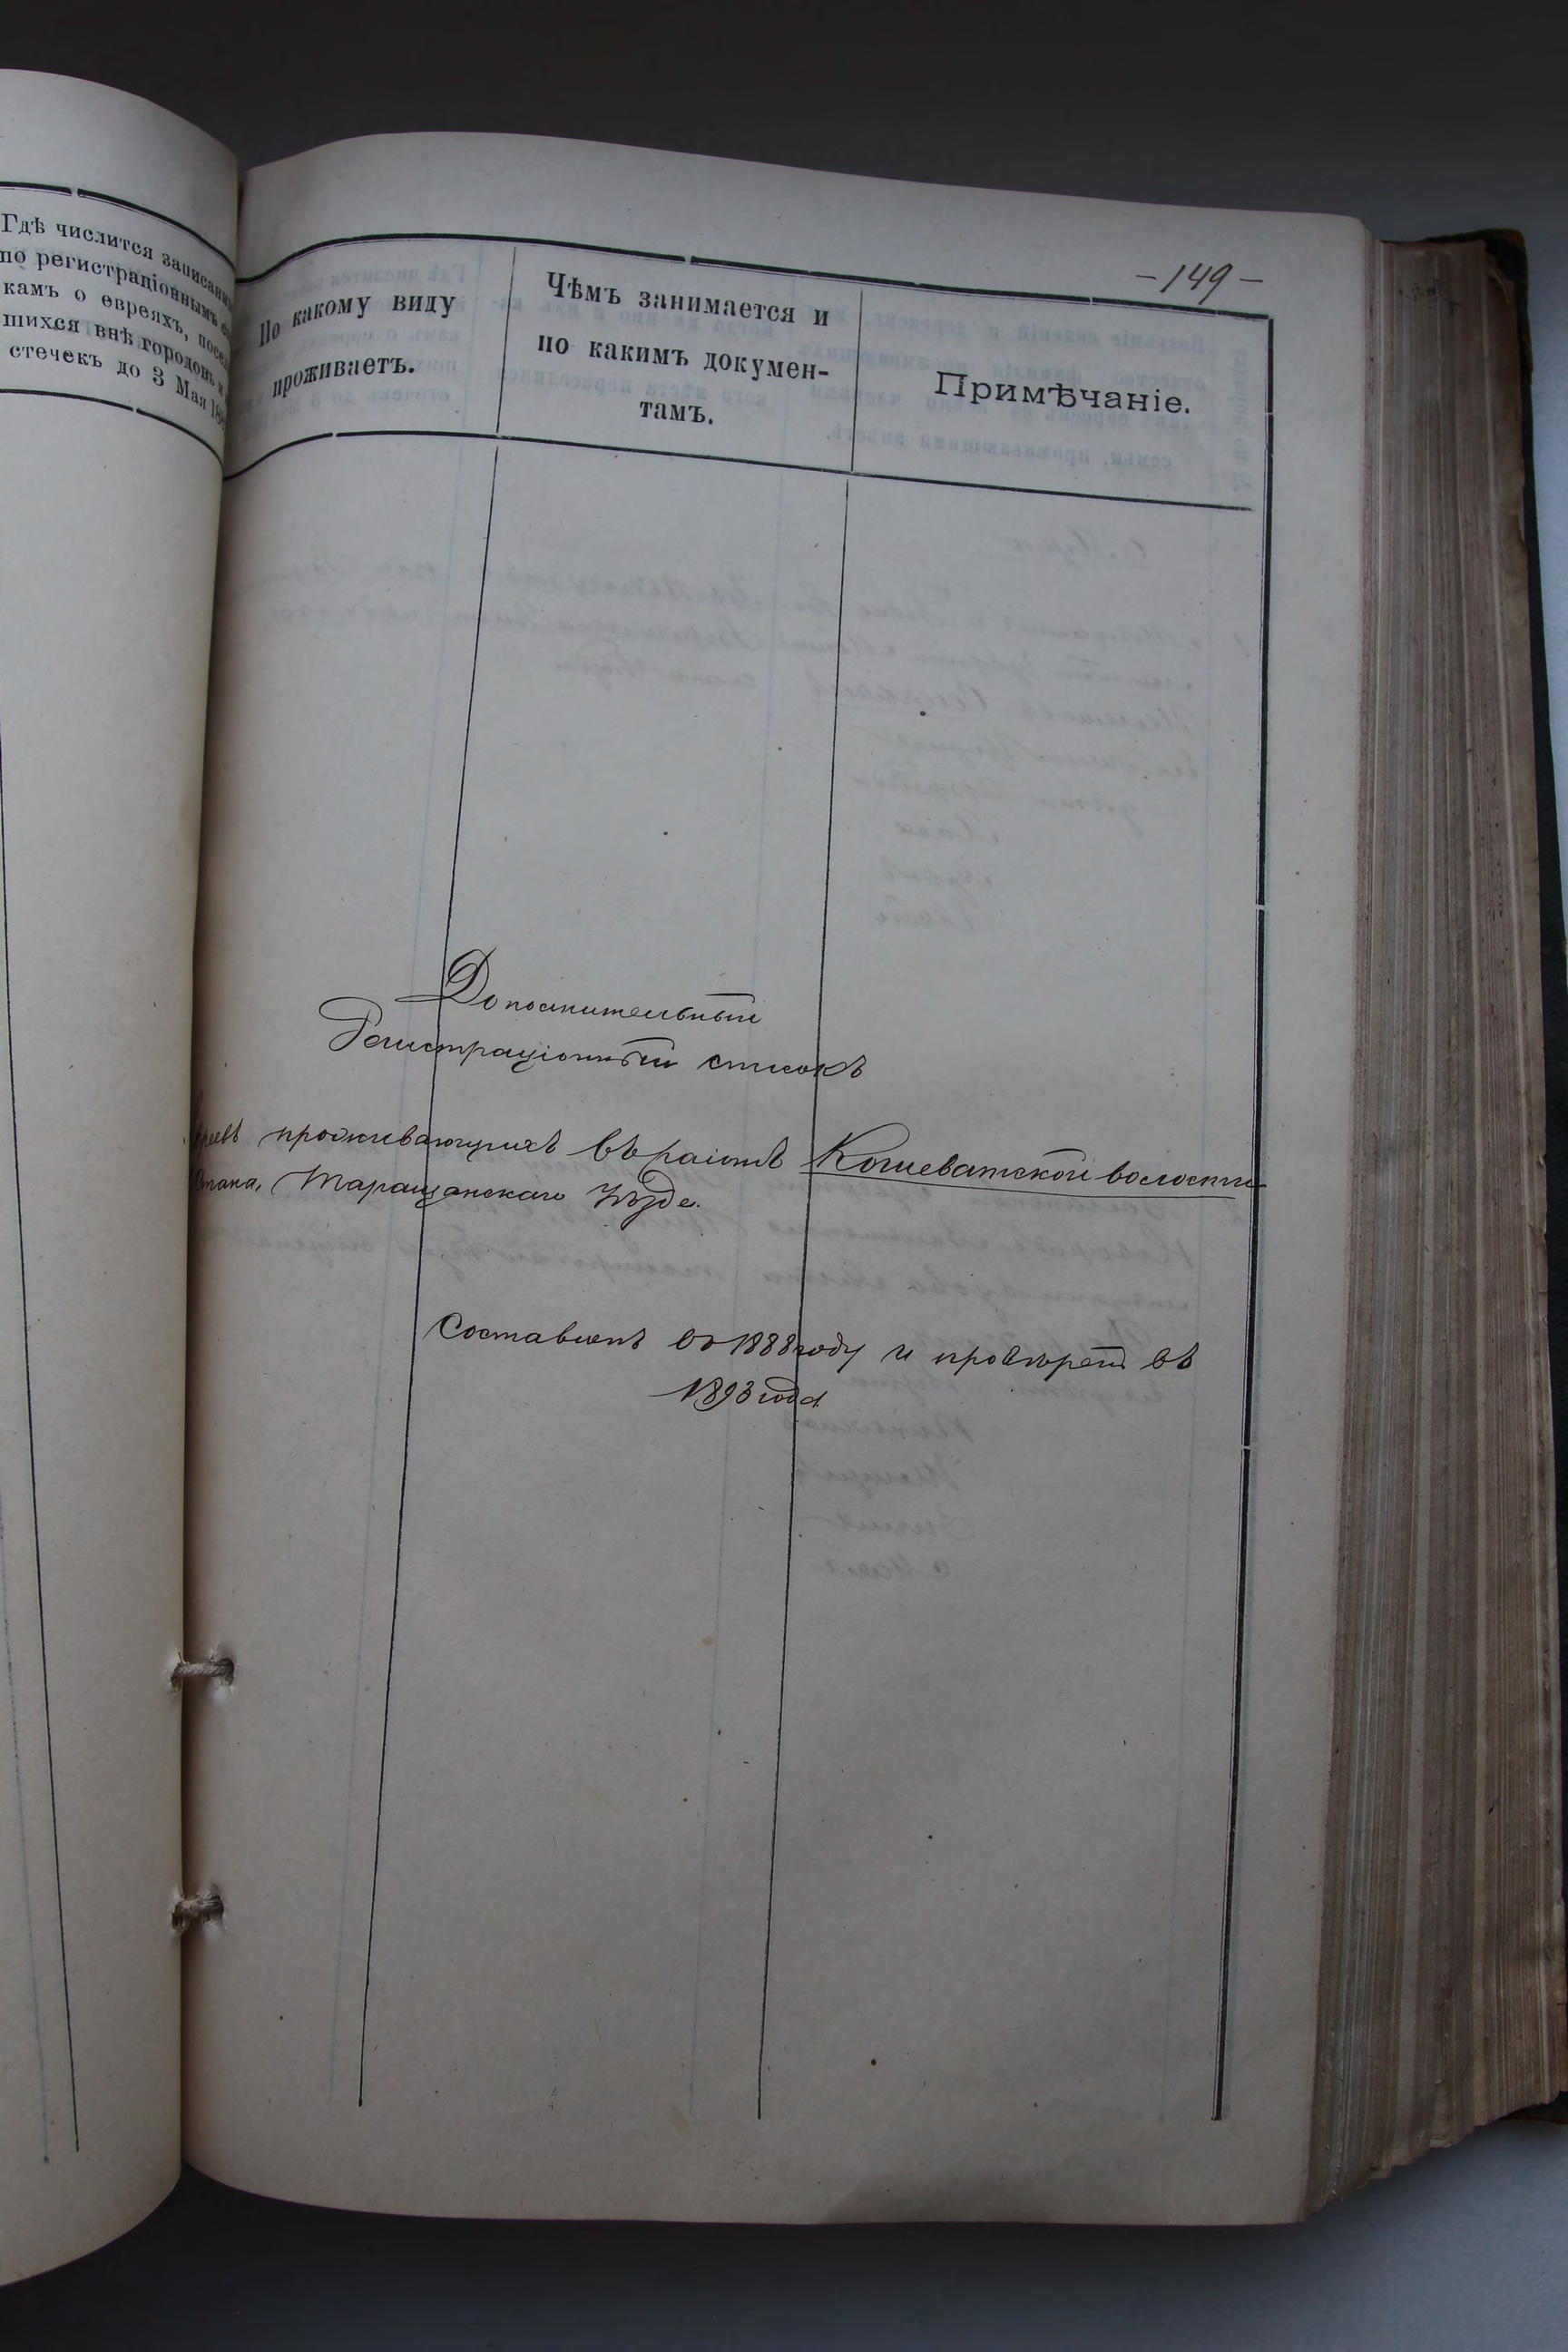 Гдѣ числится
по регистраціоннымъ
камъ о евреяхъ,
шихся внѣ городовъ
стечекъ до 3 Мая
По какому виду
проживаетъ.
Чѣмъ занимается и
по какимъ докумен-
тамъ.
Примѣчаніе.
-149-
Дополнительный
Регистраціонный списокъ
проживающихъ въ раіонѣ Кошеватской волости
Стана, Таращанскаго Уѣзда.
Составленъ въ 1888 году и провѣренъ въ
1893 года